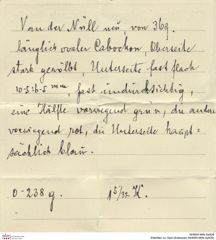 Van der Nüll neü, von 369.
länglich ovaler Cabochon, Oberseite
stark gewölbt, Unterseite fast flach
10·5:6·5 mm, fast undurchsichtig,
eine Hälfte vorwiegend grün, die andere
vorwiegend rot, die Unterseite haupt-
sächlich blau.
0·238 g. 1 5/32 K.